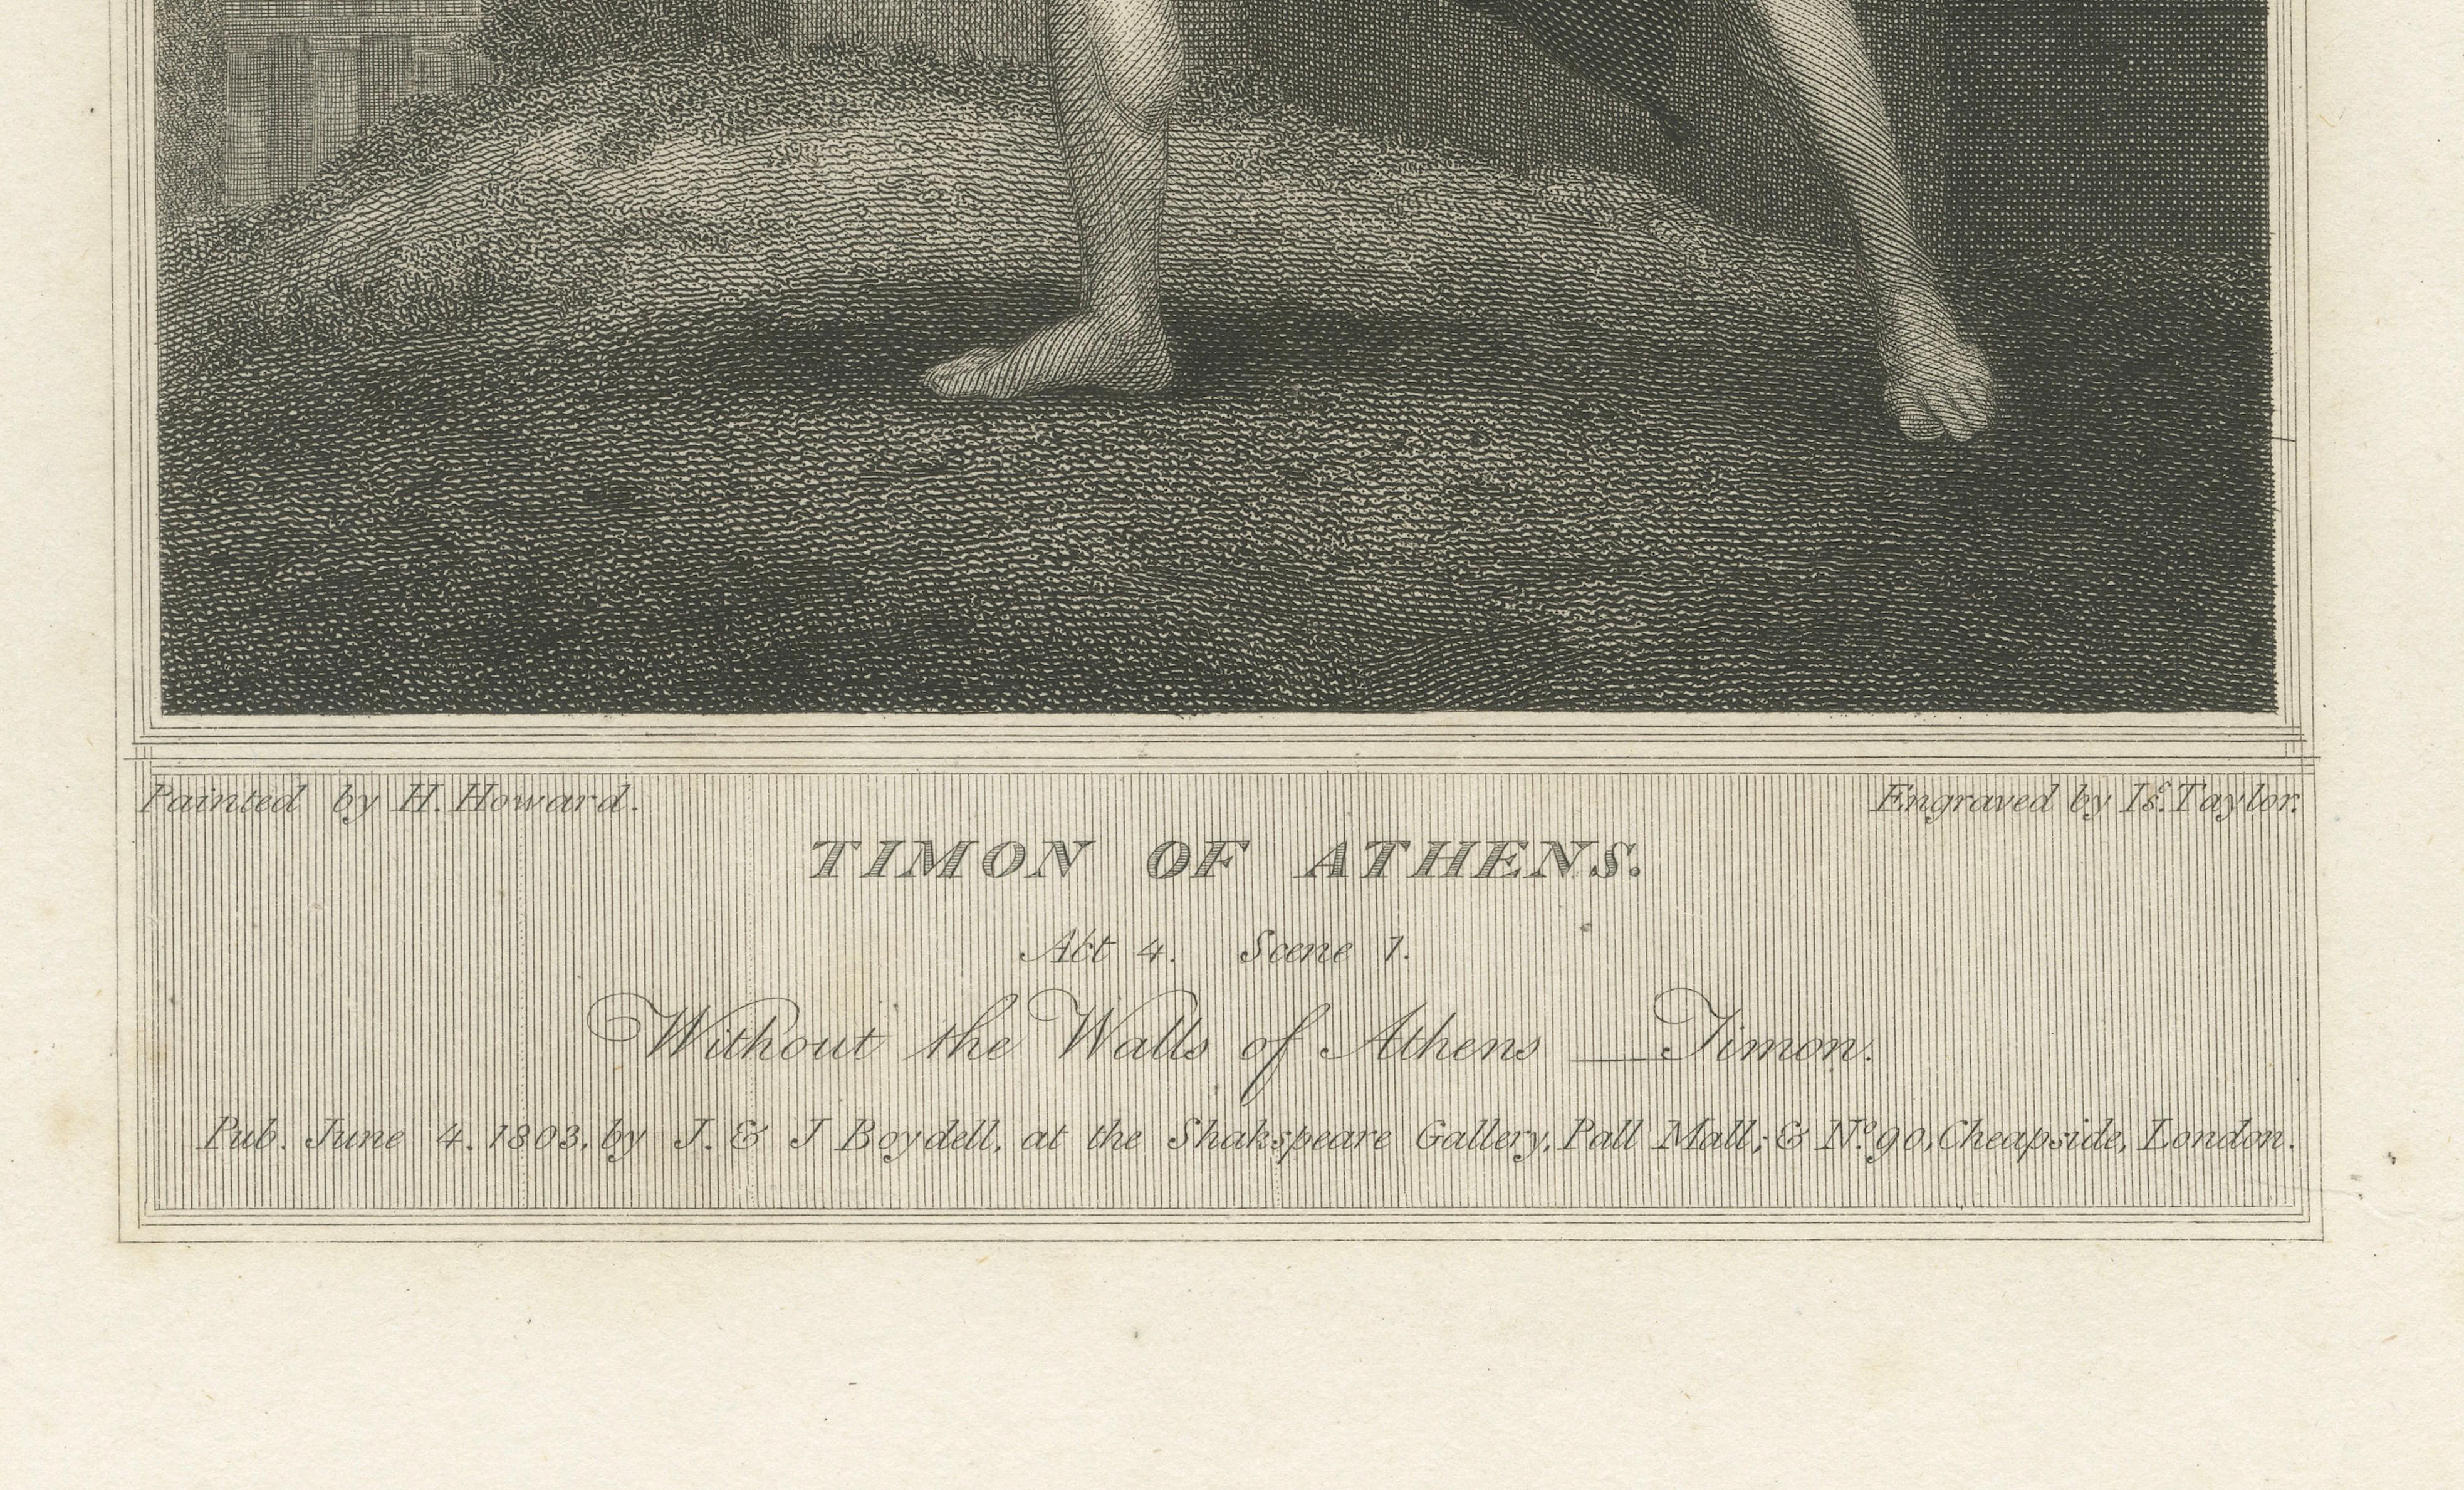 Painted by H. Howard.
Engraved by Is.c Taylor.
TIMON OF ATHENS.
Act 4. Scene 1.
Without the Walls of Athens — Timon.
Pub. June 4. 1803. by J. & J Boydell, at the Shakspeare Gallery, Pall Mall; & No. 90, Cheapside, London.